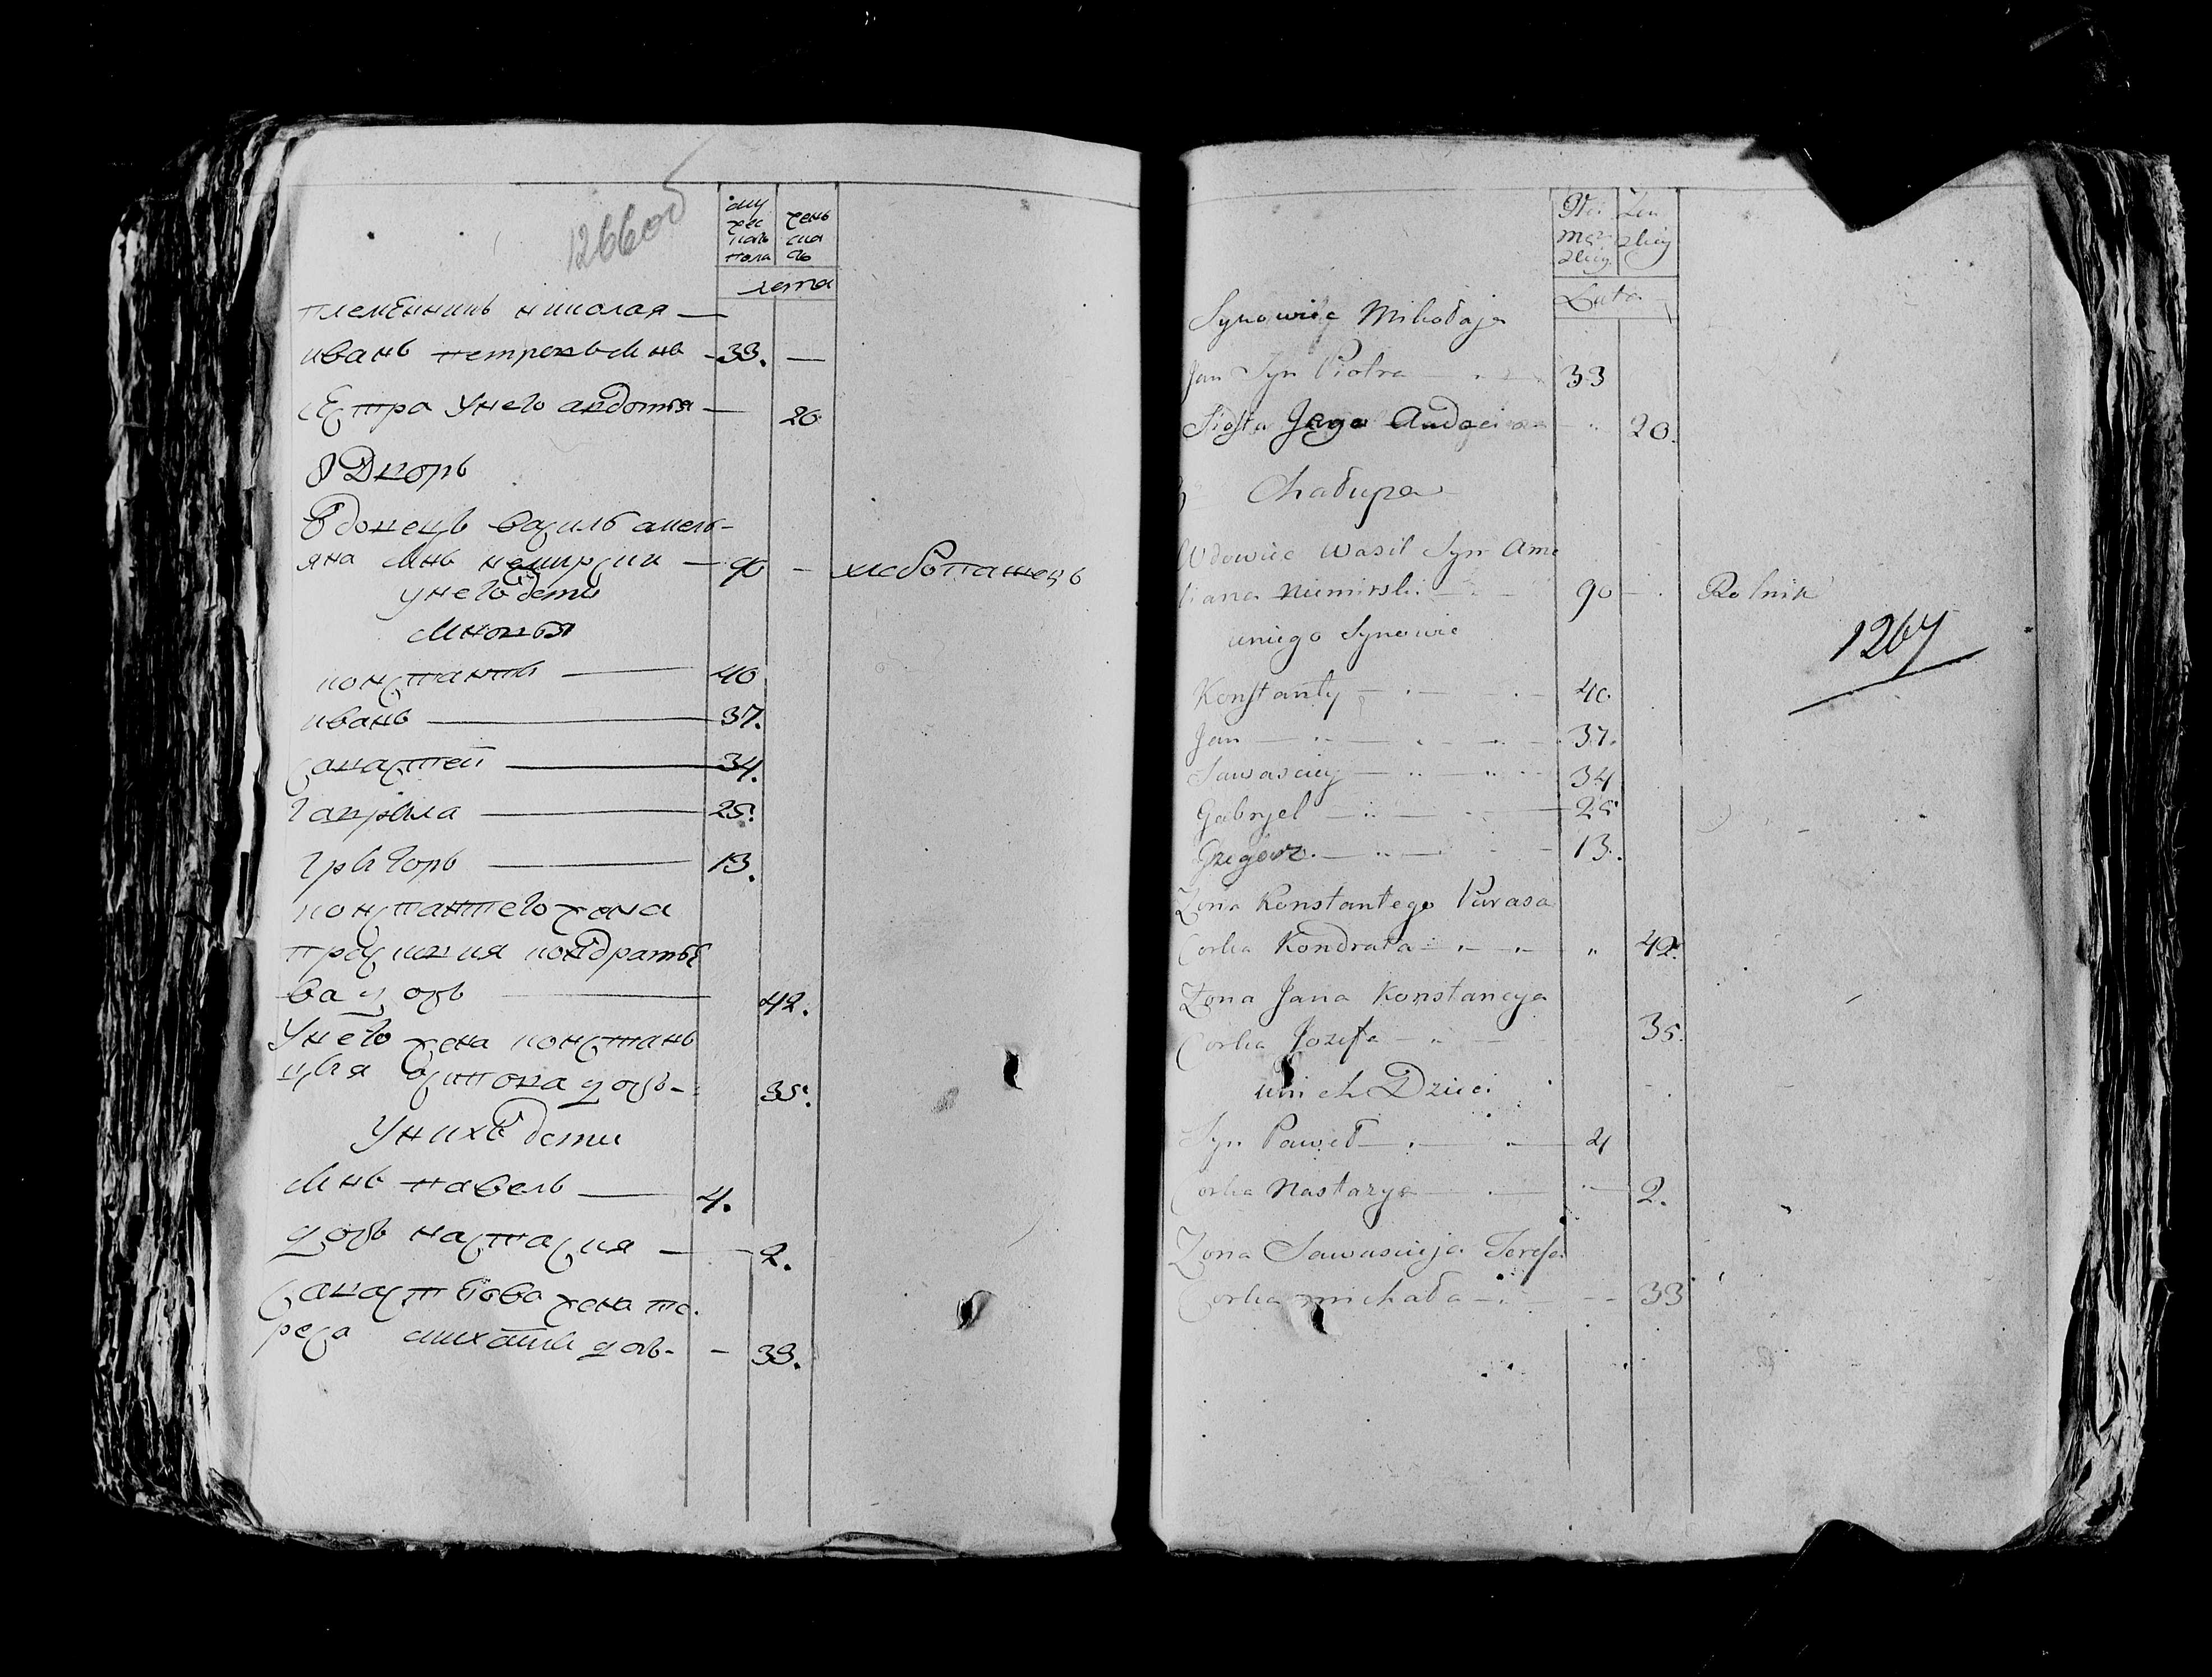 1266об
муж
ска
пола
жень
ска
го
лета
племенникъ николая
иванъ петровъ сынъ 33. —
сестра у него авдотья — 20.
8 Дворъ
Вдовецъ василь амель-
яна сынъ немирски — 90 — хлебопашецъ
у него дети
сыновья
константы 40
иванъ 37.
савастей 34.
гаврыла 25.
грыгоръ 13.
константего жена
прасковия кондратье
ва дочь 42.
у него жена констань
цыя дочь 35.
у нихъ дети
сынъ павелъ 4.
дочь настасия 2.
савастеева жена те
реса михайлы дочь 33.
Płci
męz
zkiey
Zen
zkiey
Lata
Synowiec Mikołaja
Jan Syn Piotra 33
Siostra Jego Audocia 20.
8 Chałupa
Wdowiec Wasil Syn Ame
liana Niemirski 90 Rolnik
1267
u niego Synowie
Konstanty 40.
Jan 37.
Sawasciey 34
Gabryel 25
Grzegorz 13.
Zona Konstantego Parasa
Corka Kondrata 42.
Zona Jana Konstancya
Corka Jozefa 35.
u nich Dzieci
Syn Paweł 4
Corka Nastazya 2.
Zona Sawascieja Teresa
Corka michała 33